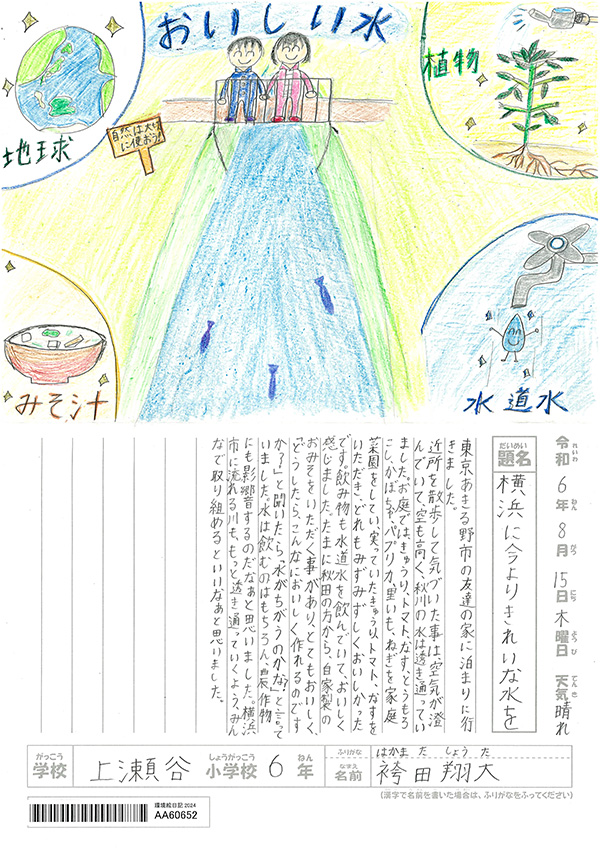 おいしい水
地球
自然は大切
に使おう!
植物
みそ汁
水道水
令和 れいわ 6年 ねん 8月 がつ 15日 にち 木曜日 ようび 天気 てんき 晴れ
だいめい
題名 横浜に今よりきれいな水を
東京あきる野市の友達の家に泊まりに行
きました。
近所を散歩して気づいた事は、空気が澄
んでいて、空も高く、秋川の水は透き通ってい
ました。お庭では、きゅうり、トマト、なす、とうもろ
こし、かぼちゃ、パプリカ、里いも、ねぎを家庭
菜園をしてい、実っていたきゅうり、トマト、なすを
いただき、どれもみずみずしくおいしかった
です。飲み物も水道水を飲んでいて、おいしく
感じました。たまに秋田の方から、自家製の
おみそをいただく事があり、とてもおいしく、
「どうしたら、こんなにおいしく作れるのです
か?」と聞いたら、「水がちがうのかな?」と言って
いました。水は飲むのはもちろん、農作物
にも影響するのだなぁと思いました。横浜
市に流れる川も、もっと透き通っていくよう、みん
なで取り組めるといいなぁと思いました。
がっこう しょうがっこう ねん
学校 上瀬谷 小学校 6 年
ふりがな はかま だ しょう た
なまえ
名前 袴田翔大
(漢字で名前を書いた場合は、ふりがなをふってください)
環境絵日記 2024
AA60652